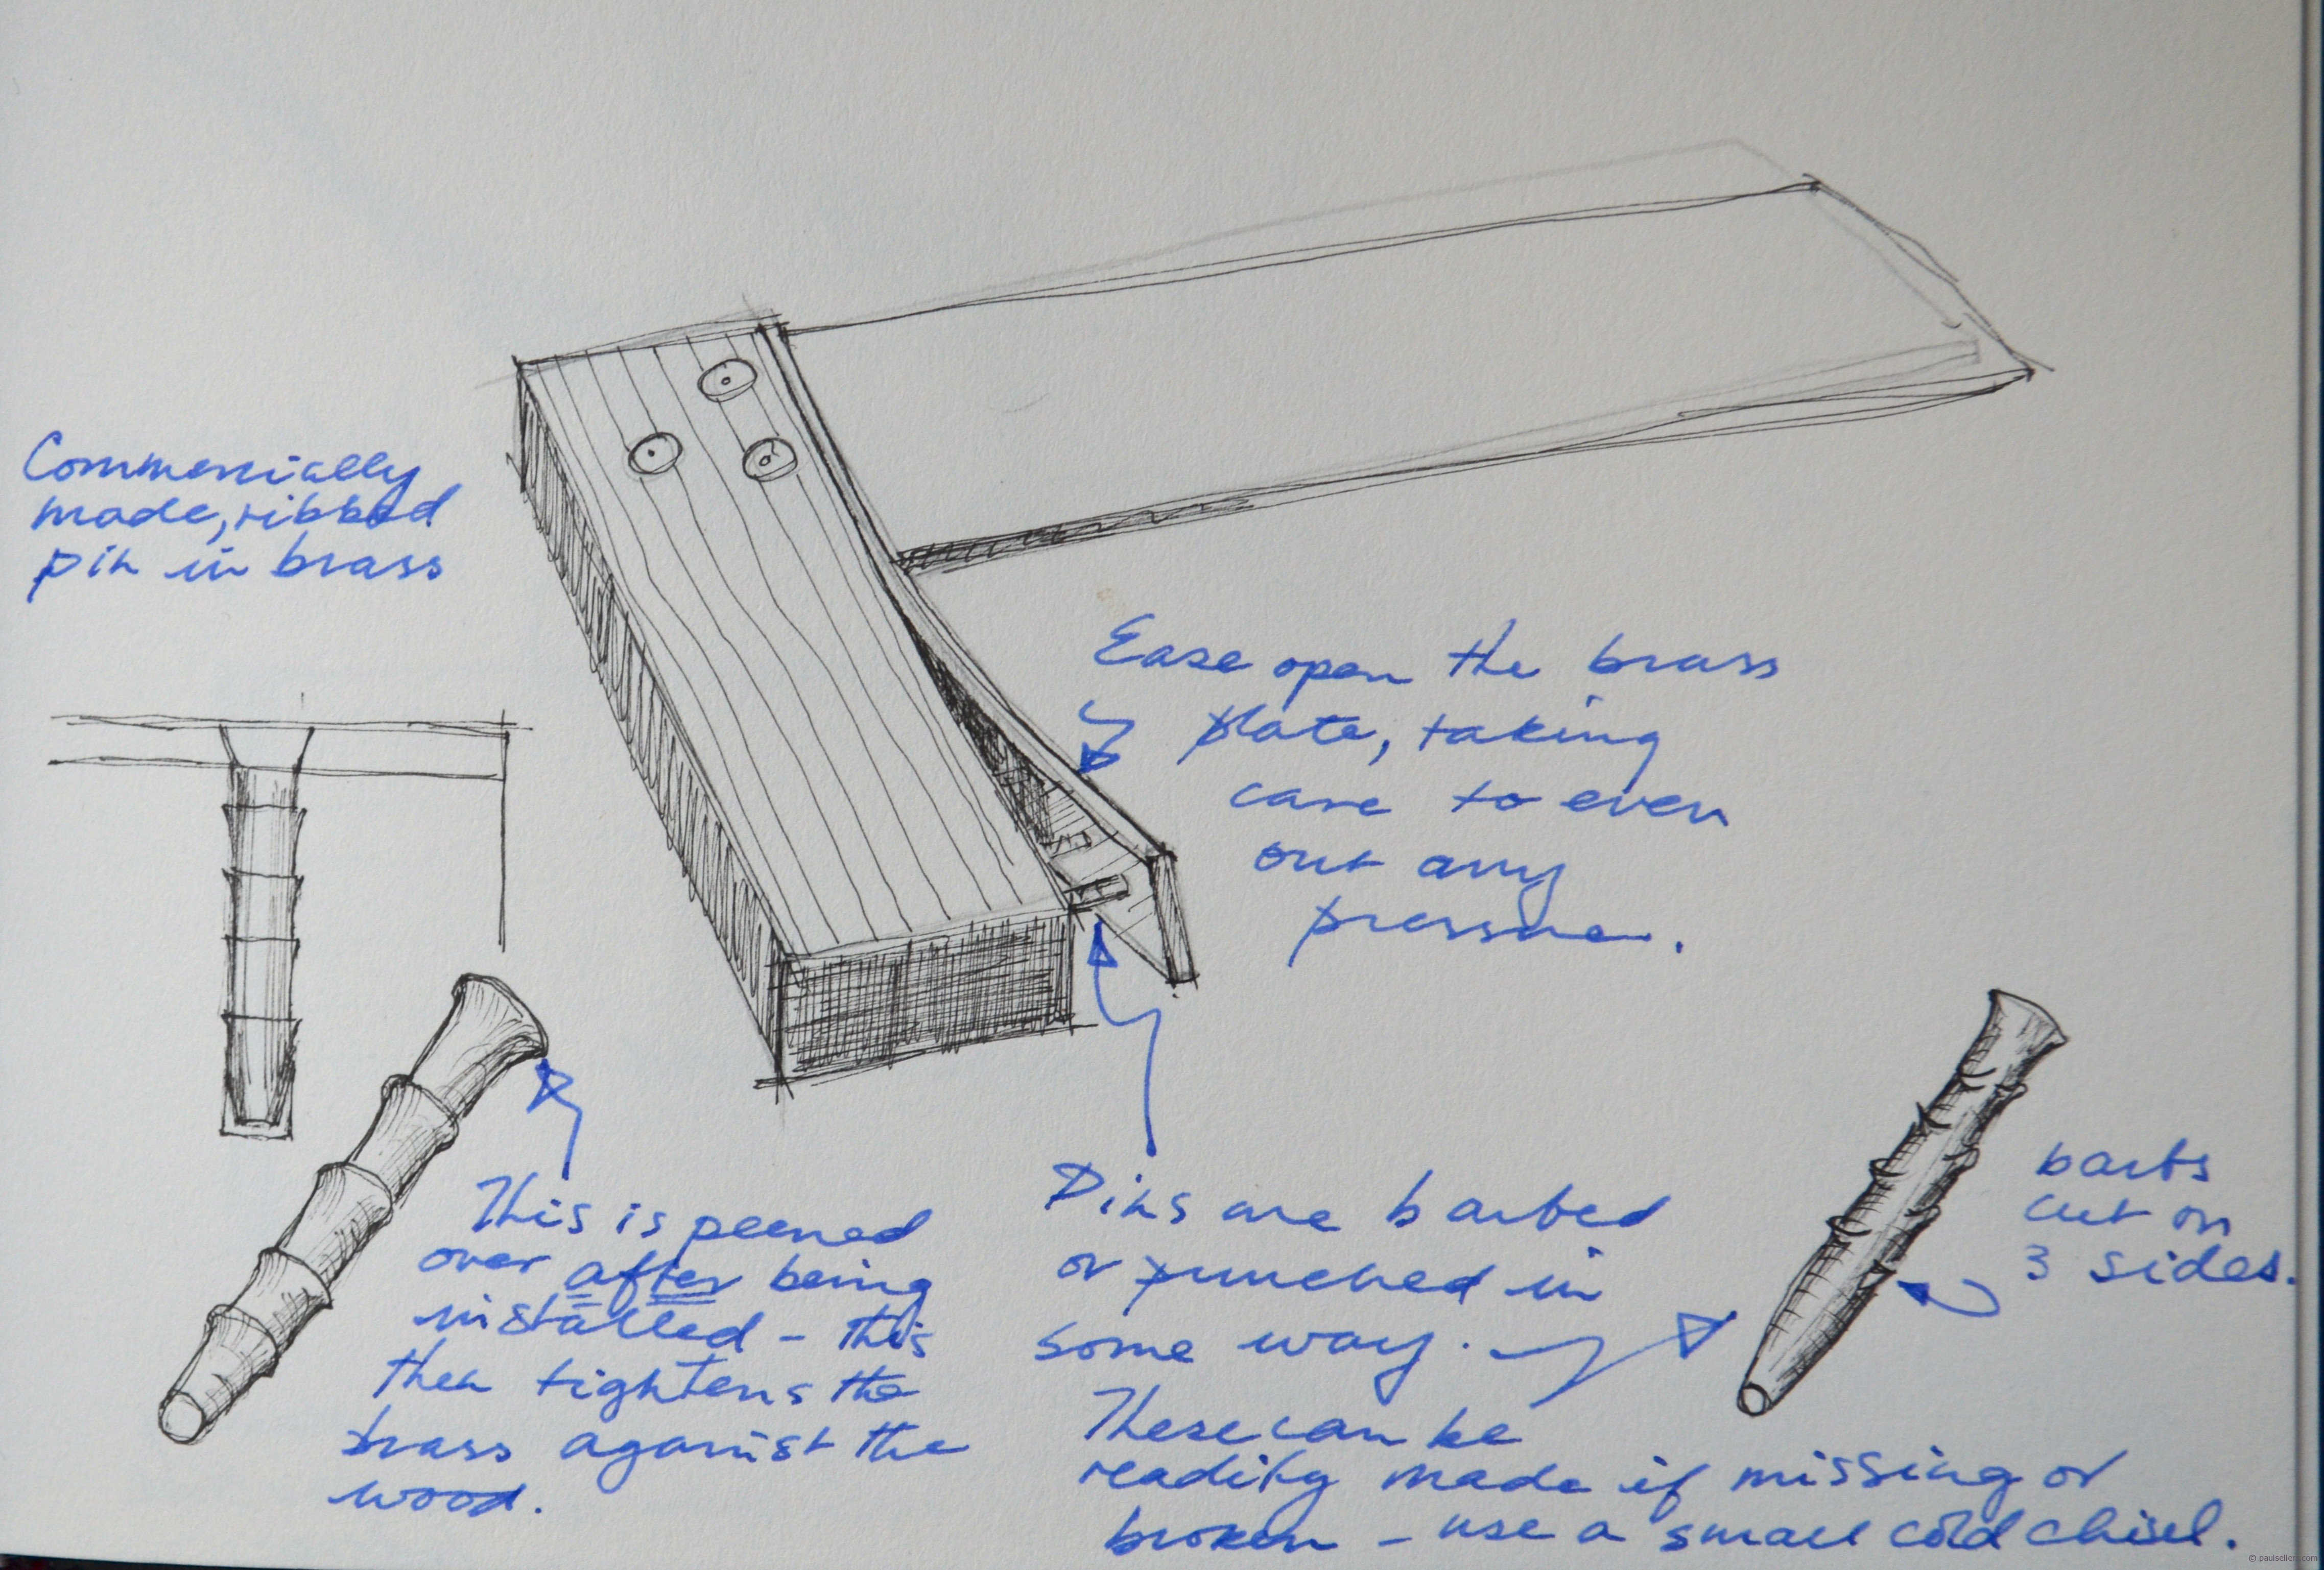 Commercially
made, ribbed
pin in brass
Ease open the brass
plate, taking
care to even
out any
pressure.
This is peened
over after being
installed - this
then tightens the
brass against the
wood.
Pins are barbed
or punched in
some way.
These can be
readily made if missing or
broken - use a small cold chisel.
barbs
cut on
3 sides.
© paulsellers.com